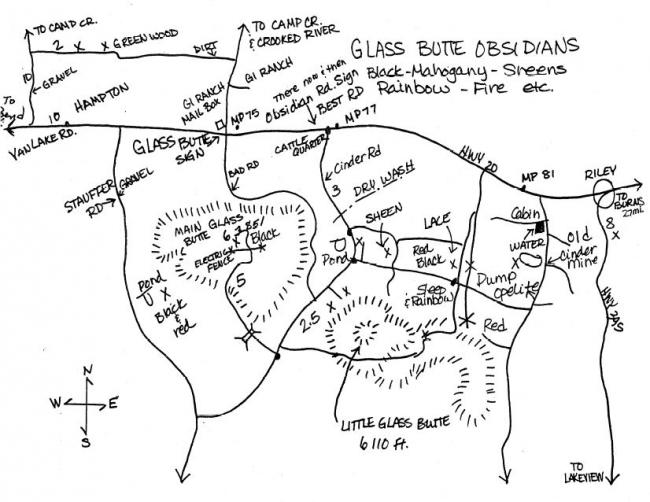 TO CAMP CR.
2 x x GREENWOOD
DIRT
TO CAMP CR.
& CROOKED RIVER
GLASS BUTTE OBSIDIANS
Black-Mahogany-Sheens
Rainbow-Fire etc.
10
GRAVEL
GI RANCH
There now & then
Obsidian Rd. Sign
BEST RD
To
10
HAMPTON
GI RANCH
MAIL BOX
MP75
MP77
VAN LAKE RD.
GLASS BUTTE
SIGN
CATTLE
QUARTER
HWY 20
MP 81
RILEY
TO
BURNS
27mi
STAUFFER
RD
GRAVEL
BAD RD
Cinder Rd
3
DRY WASH
MAIN GLASS
BUTTE
Black
ELECTRIC
FENCE
SHEEN
LACE
Cabin
WATER
Old
Cinder
mine
8
x
Pond
x
Red
Black
x
Pond
x
Black
&
red
5
Sheep
& Rainbow
Dump
Opelite
HWY 395
2.5
x x
Red
N
W E
S
LITTLE GLASS BUTTE
6110 ft.
TO
LAKEVIEW